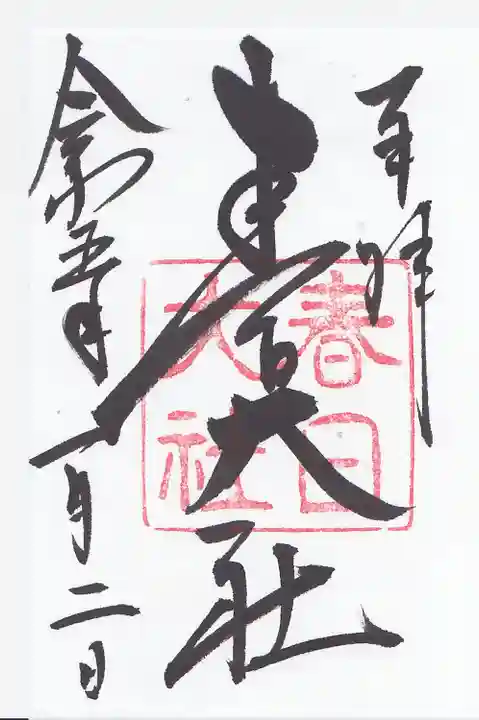 奉拝
春日大社
春日
大社
令和五年
一月二日